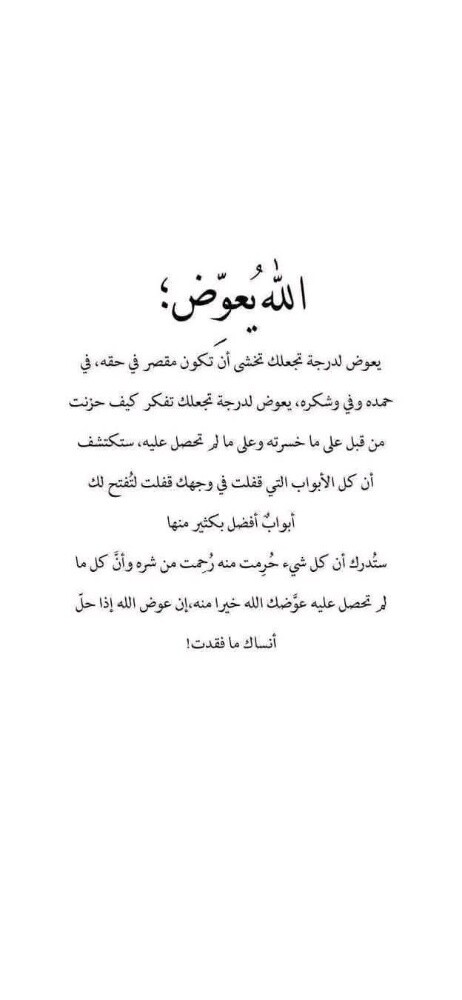 الله يُعوِّض؛
يعوض لدرجة تجعلك تخشى أن تكون مقصر في حقه، في
حمده وفي وشكره، يعوض لدرجة تجعلك تفكر كيف حزنت
من قبل على ما خسرته وعلى ما لم تحصل عليه، ستكتشف
أن كل الأبواب التي قفلت في وجهك قفلت لتُفتح لك
أبوابٌ أفضل بكثير منها
ستُدرك أن كل شيء حُرِمت منه رُحِمت من شره وأنَّ كل ما
لم تحصل عليه عوَّضك الله خيرا منه،إن عوض الله إذا حلّ
أنساك ما فقدت!